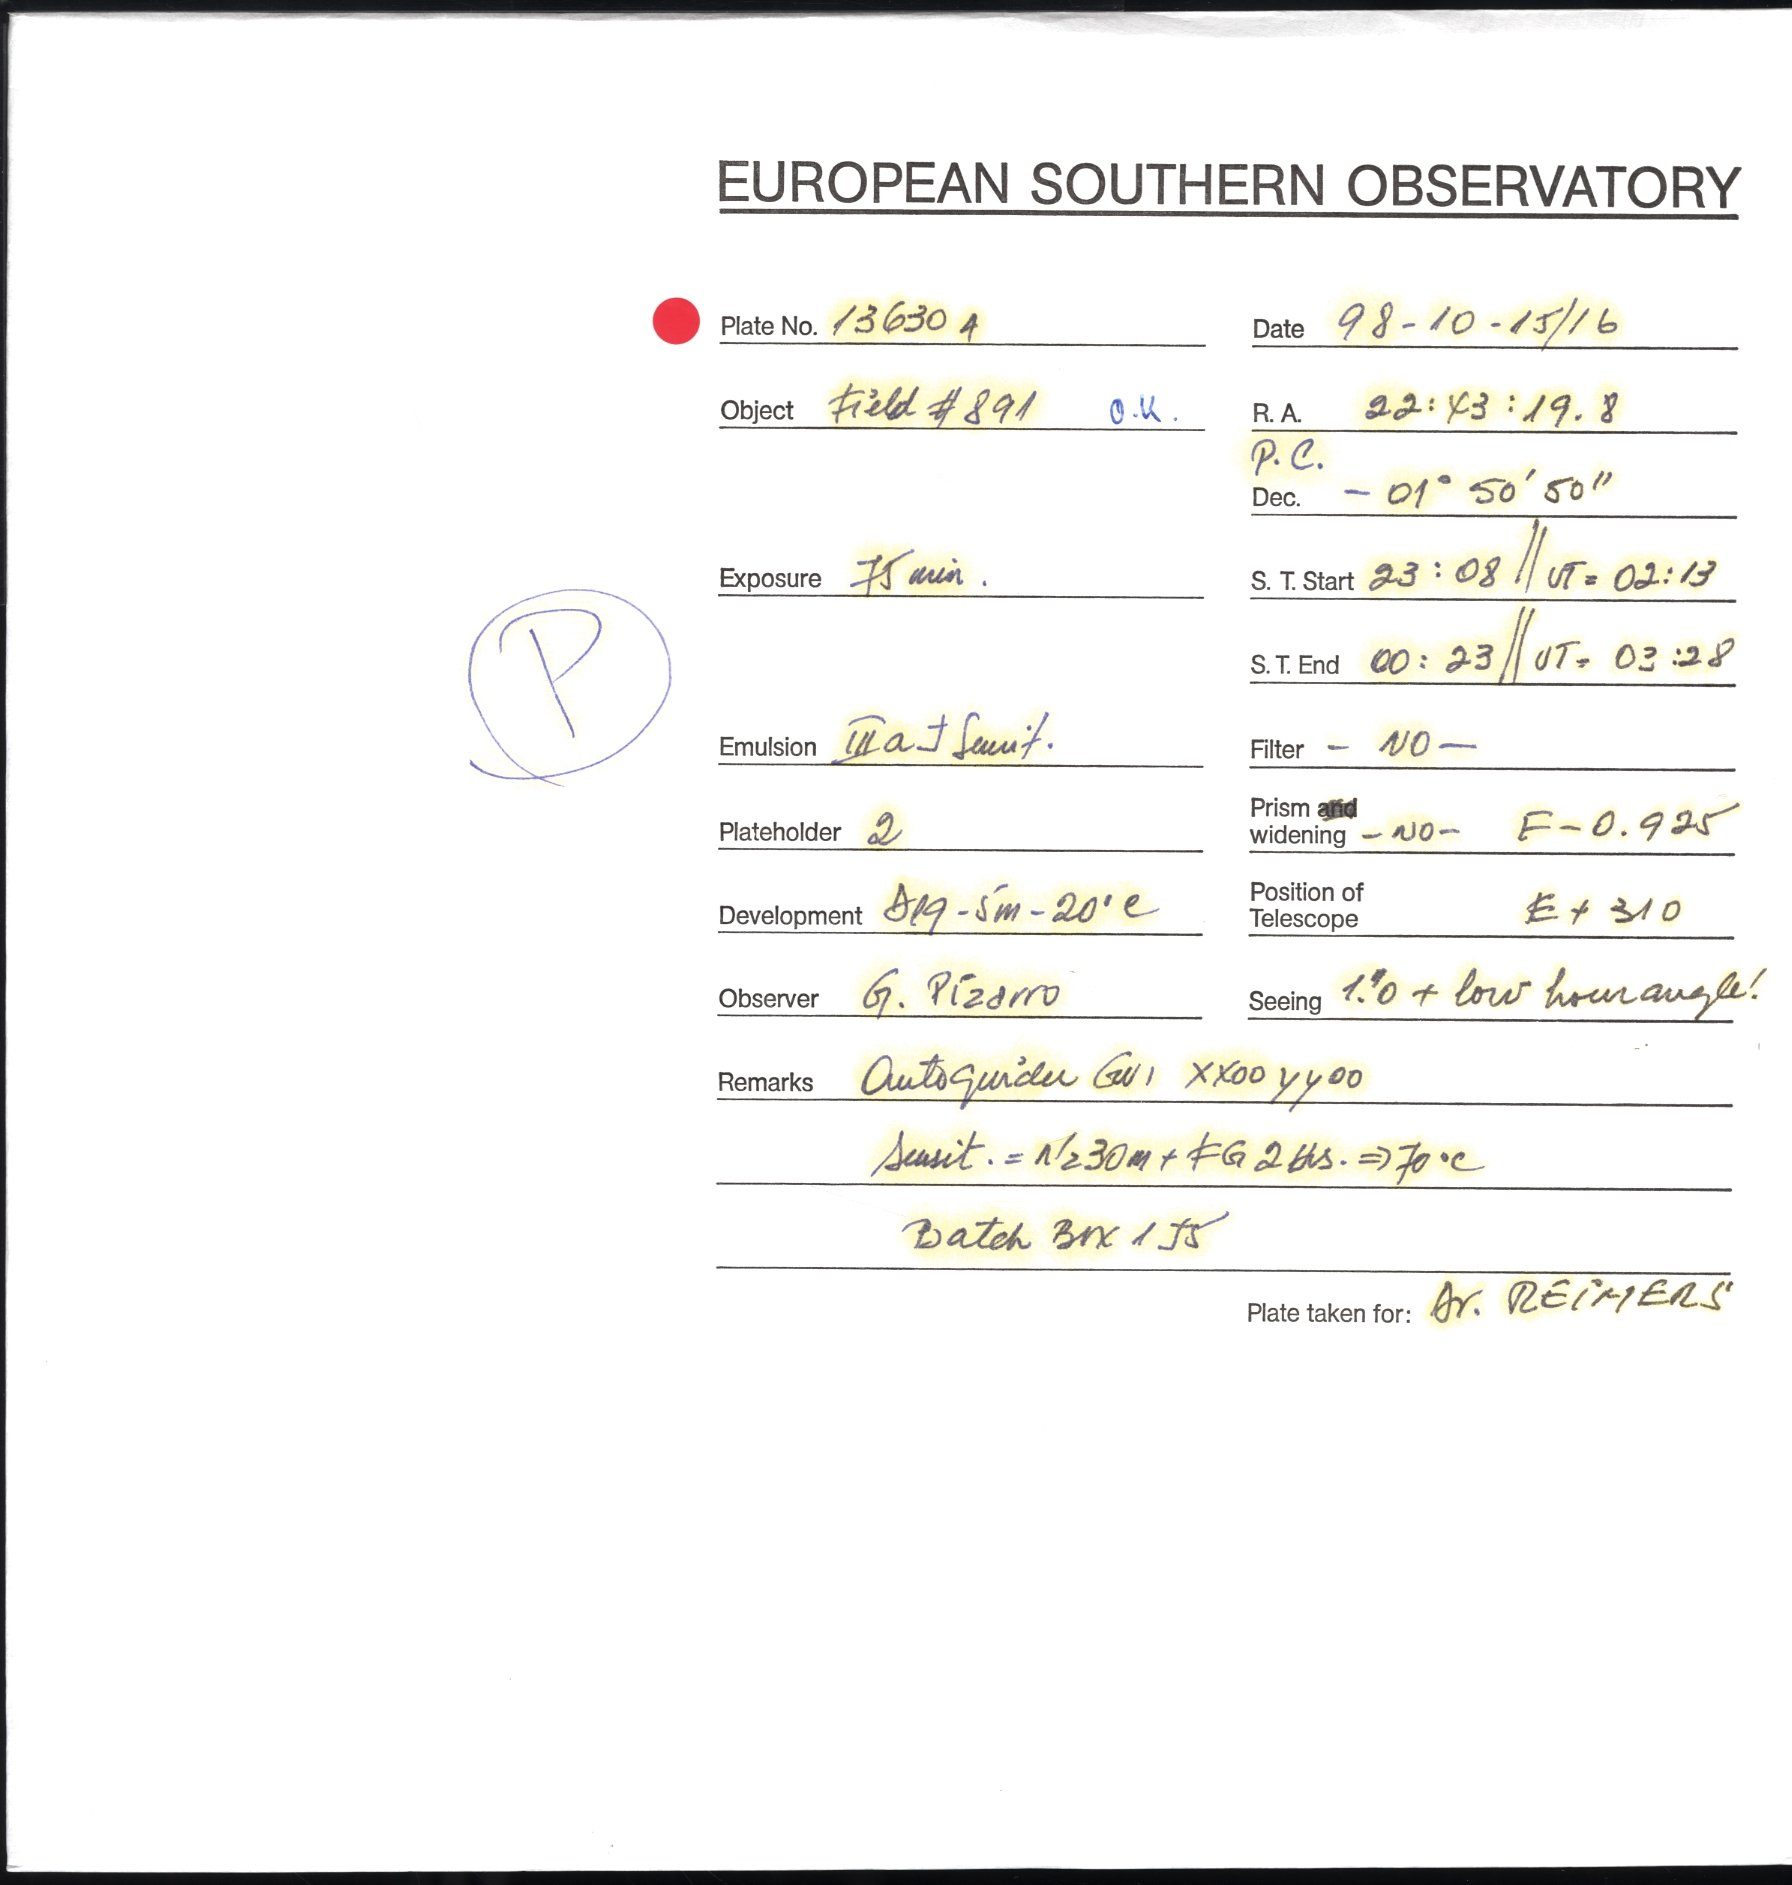 EUROPEAN SOUTHERN OBSERVATORY
Plate No. 13630 A
Date 98-10-15/16
Object Field #891 O.K.
R. A. 22:43:19.8
P.C.
Dec. - 01° 50' 50"
Exposure 75 min.
S. T. Start 23:08 // UT= 02:13
P
S. T. End 00:23 // UT= 03:28
Emulsion IIIaJ Sensit.
Filter - NO -
Plateholder 2
Prism and widening -NO- F-0.925
Development -5m-20°C
Position of Telescope E + 310
Observer G. Pizarro
Seeing 1."0 + low hour angle!
Remarks Autoguider XX00 YY00
Sensit. = N2 30m + FG 2 Hs. => 70°C
Batch Box 1 J5
Plate taken for: Dr. REIMERS